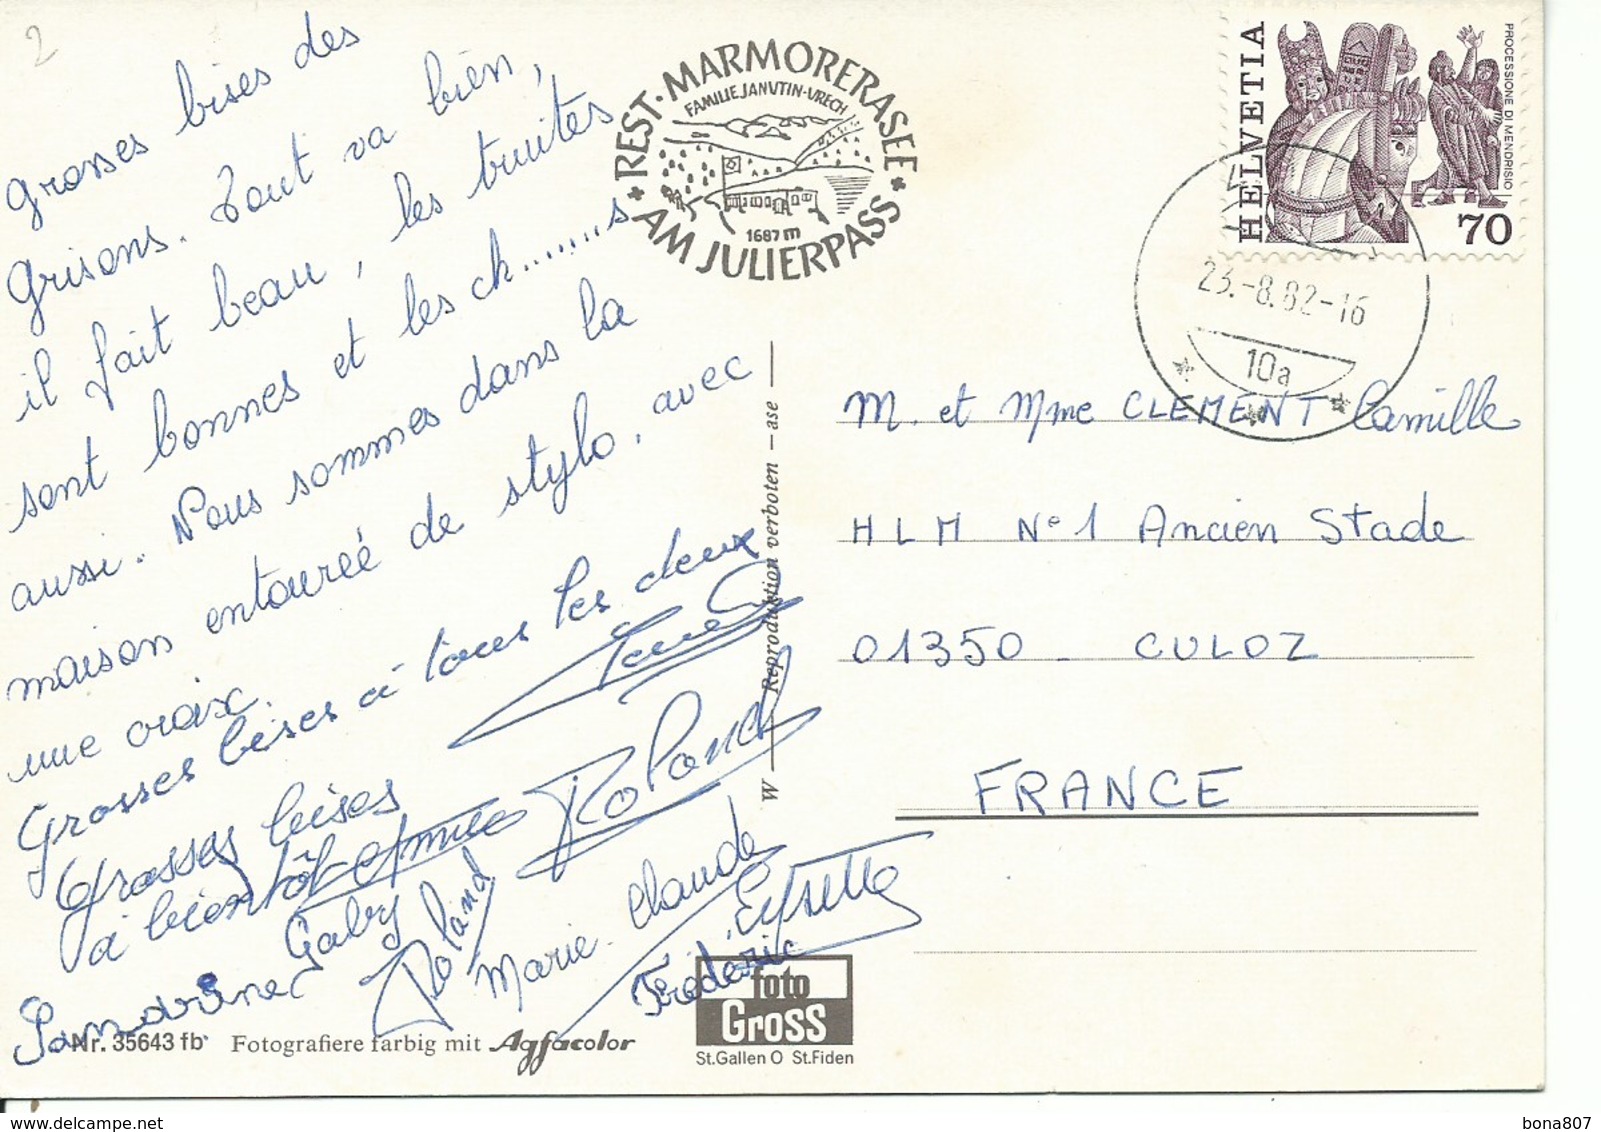 2
grosses bises des
grisons. Tout va bien,
il fait beau, les truites
sont bonnes et les ch.......s
aussi. Nous sommes dans la
maison entourée de stylo, avec
une croix.
Grosses bises à tous les deux
Grosses bises
à bientôt
Roland
Gaby
Roland
Marie-Claude
Frédéric
Sandrine
REST. MARMORERASEE
FAMILIE JANUTIN-URECH
1687 m
AM JULIERPASS
HELVETIA
PROCESSIONE DI MENDRISIO
70
23.-8.82-16
10a
M. et Mme CLEMENT Camille
HLM N°1 Ancien Stade
01350 - CULOZ
FRANCE
W Reproduktion verboten - ase
Nr. 35643 fb
Fotografiere farbig mit Agfacolor
foto
Gross
St.Gallen O St.Fiden
bona807